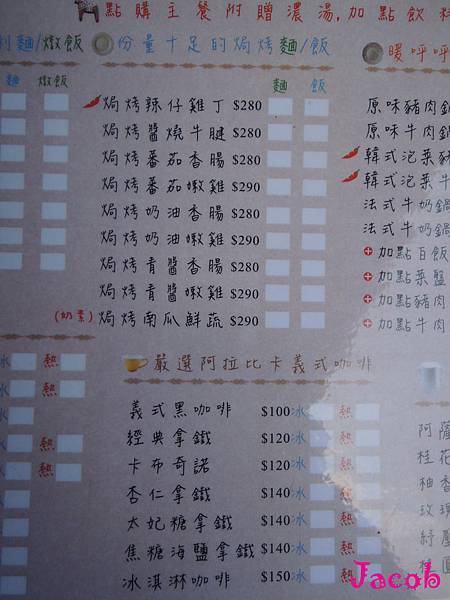 點購主餐附贈濃湯,加點飲料
利麵/燉飯
份量十足的焗烤麵/飯
暖呼呼
麵 燉飯
麵 飯
焗烤辣仔雞丁 $280
焗烤醬燒牛腱 $280
焗烤番茄香腸 $280
焗烤番茄嫩雞 $290
焗烤奶油香腸 $280
焗烤奶油嫩雞 $290
焗烤青醬香腸 $280
焗烤青醬嫩雞 $290
(奶素) 焗烤南瓜鮮蔬 $290
原味豬肉鍋
原味牛肉鍋
韓式泡菜豬
韓式泡菜牛
法式牛奶鍋
法式牛奶鍋
加點白飯
加點菜盤
加點豬肉
加點牛肉
冰 熱
冰 熱
冰
冰 熱
冰 熱
嚴選阿拉比卡義式咖啡
義式黑咖啡 $100 冰 熱
經典拿鐵 $120 冰 熱
卡布奇諾 $120 冰 熱
杏仁拿鐵 $140 冰 熱
太妃糖拿鐵 $140 冰 熱
焦糖海鹽拿鐵 $140 冰 熱
冰淇淋咖啡 $150 冰 熱
阿薩
桂花
柚香
玫瑰
紓壓
桂圓
Jacob